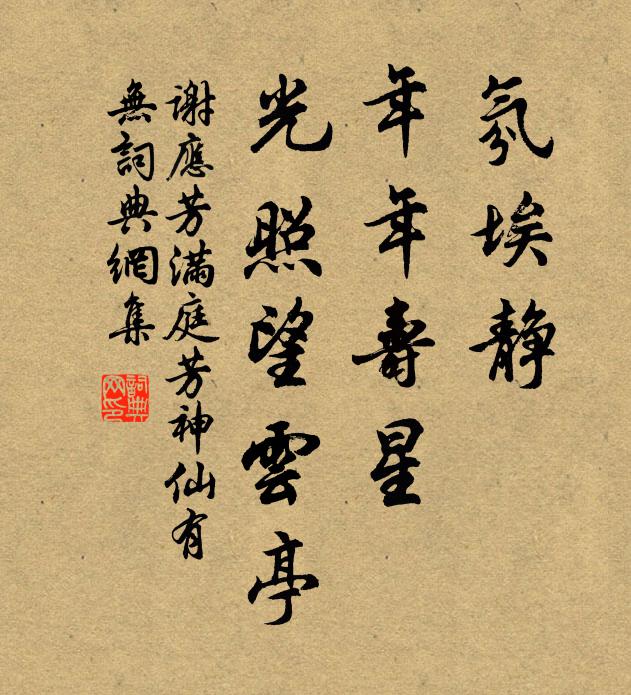 氛埃靜
年年壽星
光照望雲亭
謝應芳滿庭芳神仙有
無詞典網集
詞典網印